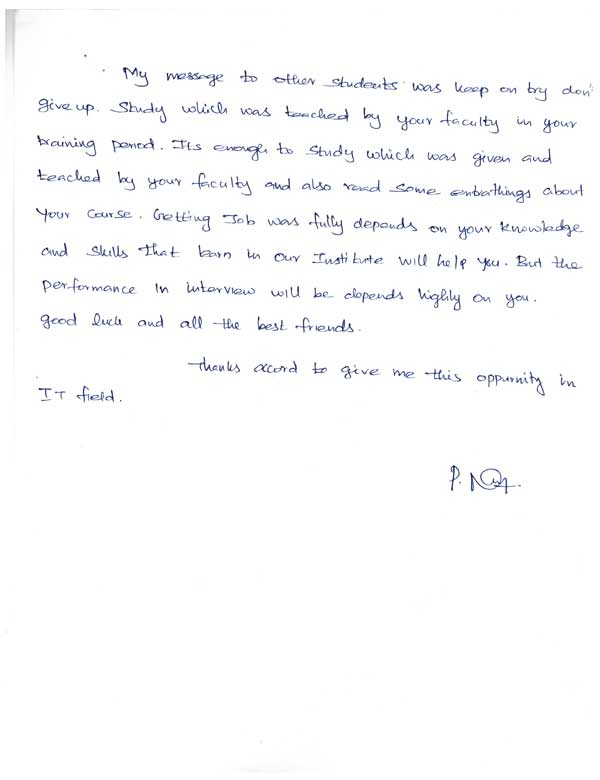 My message to other students was keep on try don'
give up. Study which was teached by your faculty in your
training period. Its enough to study which was given and
teached by your faculty and also read some extrathings about
Your Course. Getting Job was fully depends on your knowledge
and skills that learn in our Institute will help you. But the
performance in interview will be depends highly on you.
good luck and all the best friends.
Thanks accord to give me this oppurnity in
IT field.
P.